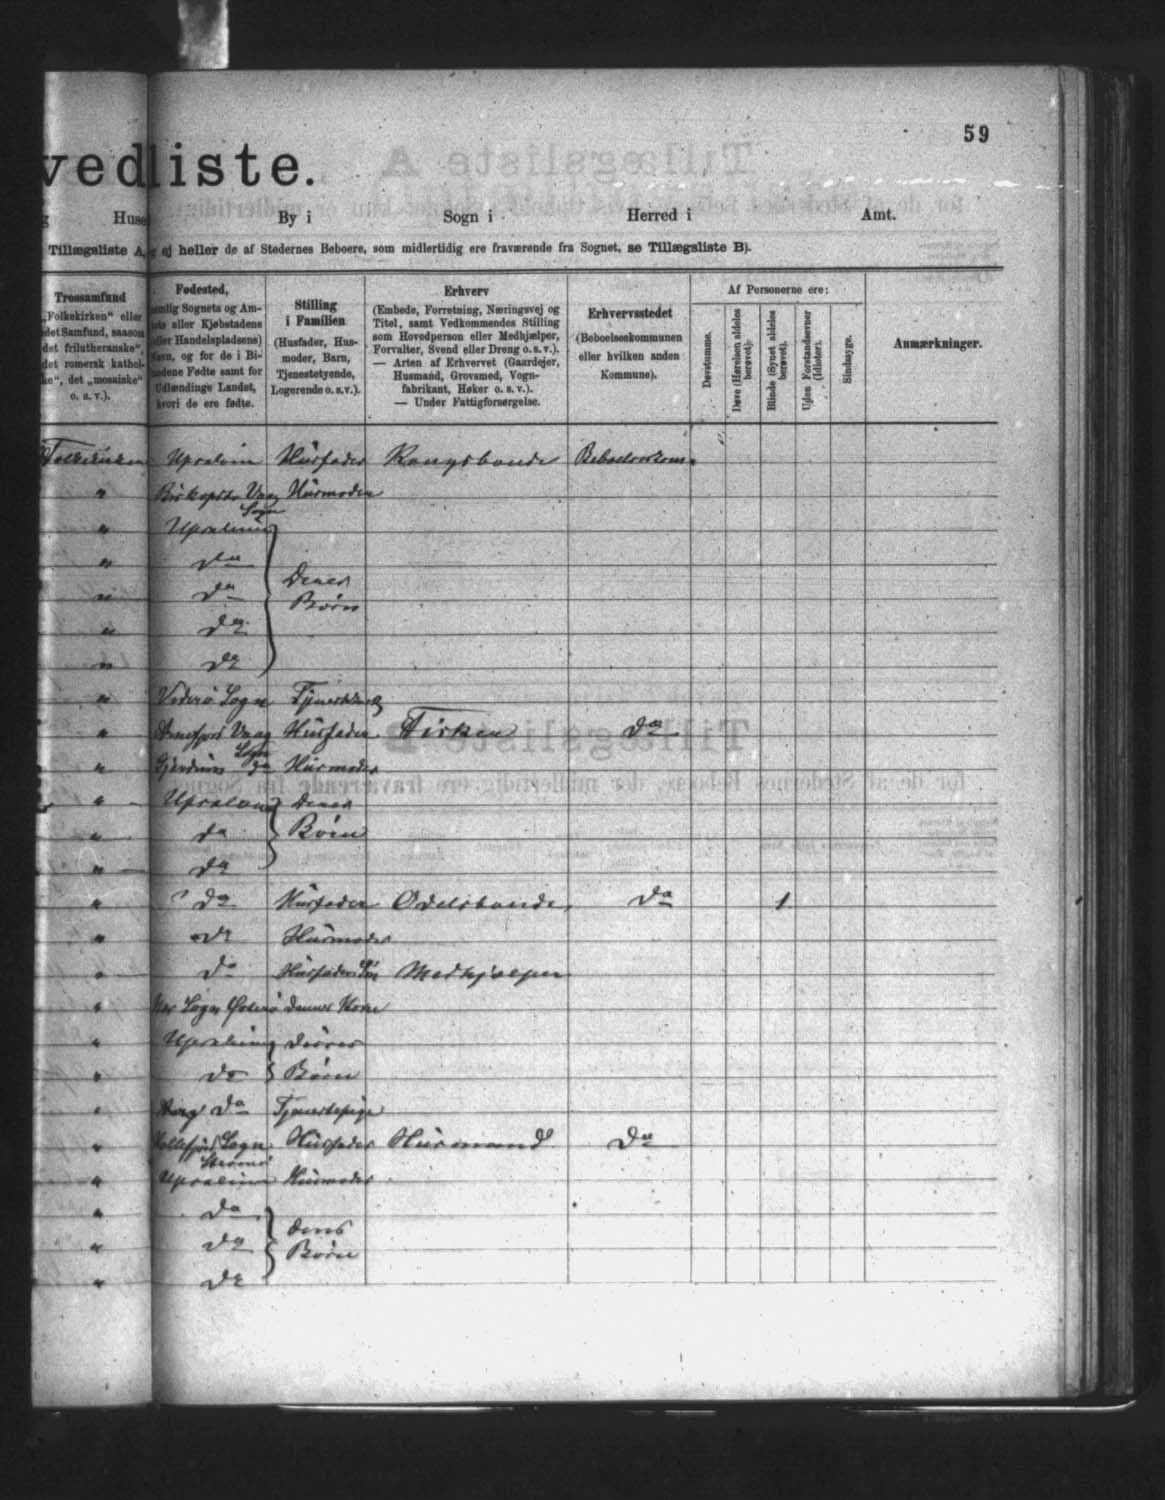 59
vedliste.
Huse By i Sogn i Herred i Amt.
Tillægsliste A, ej heller de af Stedernes Beboere, som midlertidig ere fraværende fra Sognet, se Tillægsliste B).
Trossamfund
„Folkekirken“ eller
det Samfund, saasom
det frilutheranske“,
det romersk kathol-
ke“, det „mosaiske“
o. s. v.).
Fødested,
mlig Sognets og Am-
ts eller Kjøbstadens
ller Handelspladsens)
avn, og for de i Bi-
ndene Fødte samt for
Udlændinge Landet,
hvori de ere fødte.
Stilling
i Familien
(Husfader, Hus-
moder, Barn,
Tjenestetyende,
Logerende o. s. v.).
Erhverv
(Embede, Forretning, Næringsvej og
Titel, samt Vedkommendes Stilling
som Hovedperson eller Medhjælper,
Forvalter, Svend eller Dreng o. s. v.).
— Arten af Erhvervet (Gaardejer,
Husmand, Grovsmed, Vogn-
fabrikant, Høker o. s. v.).
— Under Fattigforsørgelse.
Erhvervsstedet
(Beboelseskommunen
eller hvilken anden
Kommune).
Af Personerne ere:
Døvstumme.
Døve (Hørelsen aldeles
berøvet).
Blinde (Synet aldeles
berøvet).
Uden Forstandsevner
(Idioter).
Sindssyge.
Anmærkninger.
Folkekirken Husfader Kongsbonde
" Husmoder
Sogn
"
" do
" do Deres
Børn
" do
" do
" Viderø Sogn
" Husfader Fisker do
Sogn
" do Husmoder
" Deres
" do Børn
" do
" do Husfader Odelsbonde do 1
" do Husmoder
" do Husfaders Søn Medhjælper
" Sogn Østerø dennes Kone
" disses
" do Børn
" do Tjenestepige
" Sogn Husfader Husmand do
" Husmoder
" do
" do deres
Børn
" do